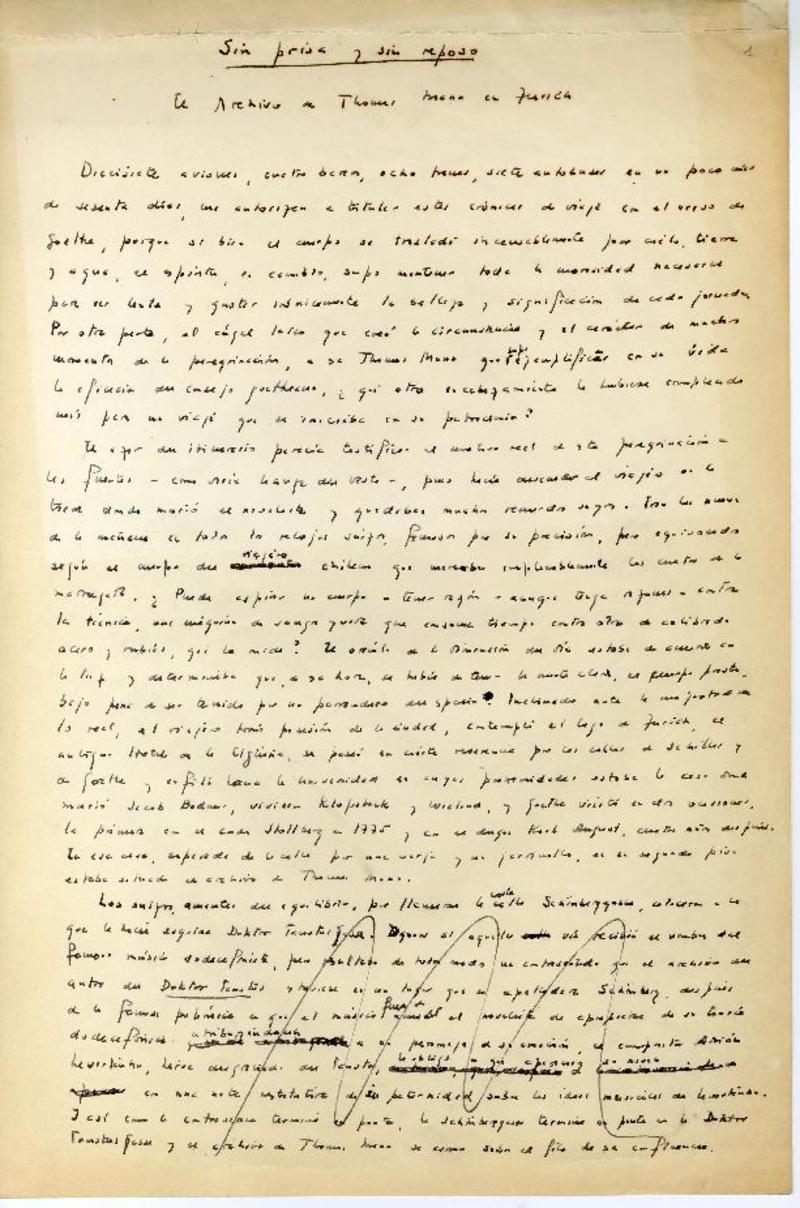 Sin prisa y sin reposo
1
El Archivo de Thomas Mann en Zurich
Diecisiete aviones, cuatro barcos, ocho trenes, siete autobuses en un poco más
de sesenta días, me autorizan a titular estas crónicas de viaje con el verso de
Goethe, porque si bien el cuerpo se trasladó incansablemente por cielo, tierra
y agua, el espíritu, en cambio, supo mantener toda la morosidad necesaria
para ver lenta y gustar irónicamente la belleza y significación de cada jornada.
Por otra parte, al ángel laico que creó la circunstancia y el carácter de muchos
momentos de la peregrinación, a Thomas Mann que supo ejemplificar en su vida
la eficacia del consejo goetheano, ¿qué otro encabezamiento le hubiera complacido
más para un viaje que se iniciaba en su patrocinio?
El azar del itinerario parecía testificar el motivo real de esta peregrinación a
las fuentes - como diría Lanza del Vasto -, pues hacía descender al viajero en la
tierra donde murió el novelista y quedaban muchos recuerdos suyos. Eran las nueve
de la mañana en todos los relojes suizos, famosos por su precisión, pero equivocados
según el cuerpo del viajero chileno que marcaba implacablemente las cuatro de la
madrugada. ¿Puede aspirar un cuerpo a tener razón - aunque tenga razones - contra
la técnica, una máquina de sangre y que consume tiempo contra otra de calibrado
acero y rubíes, que lo mide? El oráculo de la dimensión del día estaba de acuerdo con
la luz y determinaba que, a esa hora, se había de tener la mente clara, el cuerpo presto,
bajo pena de ser tenido por un del espacio. Inclinado ante la majestad de
lo real, el viajero tomó posesión de la ciudad, contempló el lago de Zurich, el
antiguo Hotel de la Cigüeña, se paseó en cierta reverencia por las calles de Schiller y
de Goethe y enfiló hacia la Universidad en cuyas proximidades estaba la casa donde
murió Jacob Bodmer, vivieron Klopstock y Wieland, y Goethe visitó en dos ocasiones,
la primera con el conde Stollberg en 1775 y con el duque Karl August, cuatro años después.
En esa casa, separada de la calle por una verja y un jardincillo, en su segundo piso
estaba situado el archivo de Thomas Mann.
Los suizos, amantes del equilibrio, por llamarse la corta calle Schönberggasse, colocaron a la
que le hacía esquina Doktor Faustusgasse. Ignoro si aquella vía recibió el nombre del
famoso músico dodecafonista, pero resultaba de todos modos un contrasentido que el archivo del
autor del Doktor Faustus estuviese en un lugar que se apellidara Schönberg, después
de la famosa polémica en que el músico acusó al novelista de apropiarse de su teoría
dodecafónica atribuyéndosela a un personaje de su creación, el compositor Adrián
Leverkühn, héroe desgraciado del Faustus,
en una nota restitutiva de su paternidad sobre las ideas musicales de Leverkühn.
Y así como la controversia terminó en punta, la Schönberggasse termina en punta en la Doktor
Faustusgasse y el archivo de Thomas Mann se asoma sobre el filo de su confluencia.